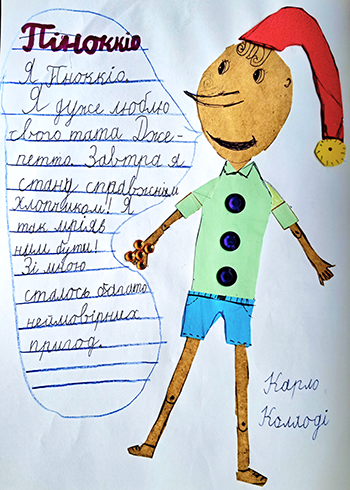 Піноккіо
Я Піноккіо.
Я дуже люблю
свого тата Дже-
петто. Завтра я
стану справжнім
хлопчиком! Я
так мріяв
ним бути!
Зі мною
сталось багато
неймовірних
пригод.
Карло
Коллоді